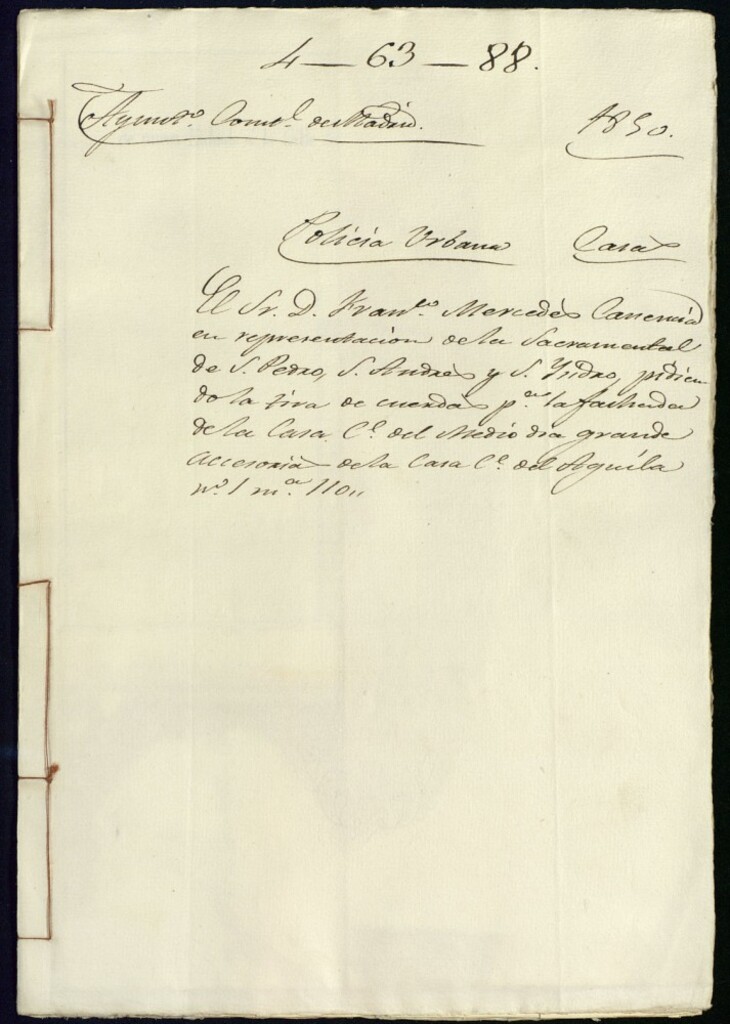 4 — 63 — 88.
Ayunto. Constl. de Madrid. 1850.
Policía Urbana Casas
El Sr. D. Franco. Mercedes Canencia
en representacion de la Sacramental
de S. Pedro, S. Andres y S. Ysidro, pidien-
do la tira de cuerdas pa. la fachada
de la Casa Ce. del Medio dia grande
accesoria de la Casa Ce. del Aguila
no. 1 ma. 110,,